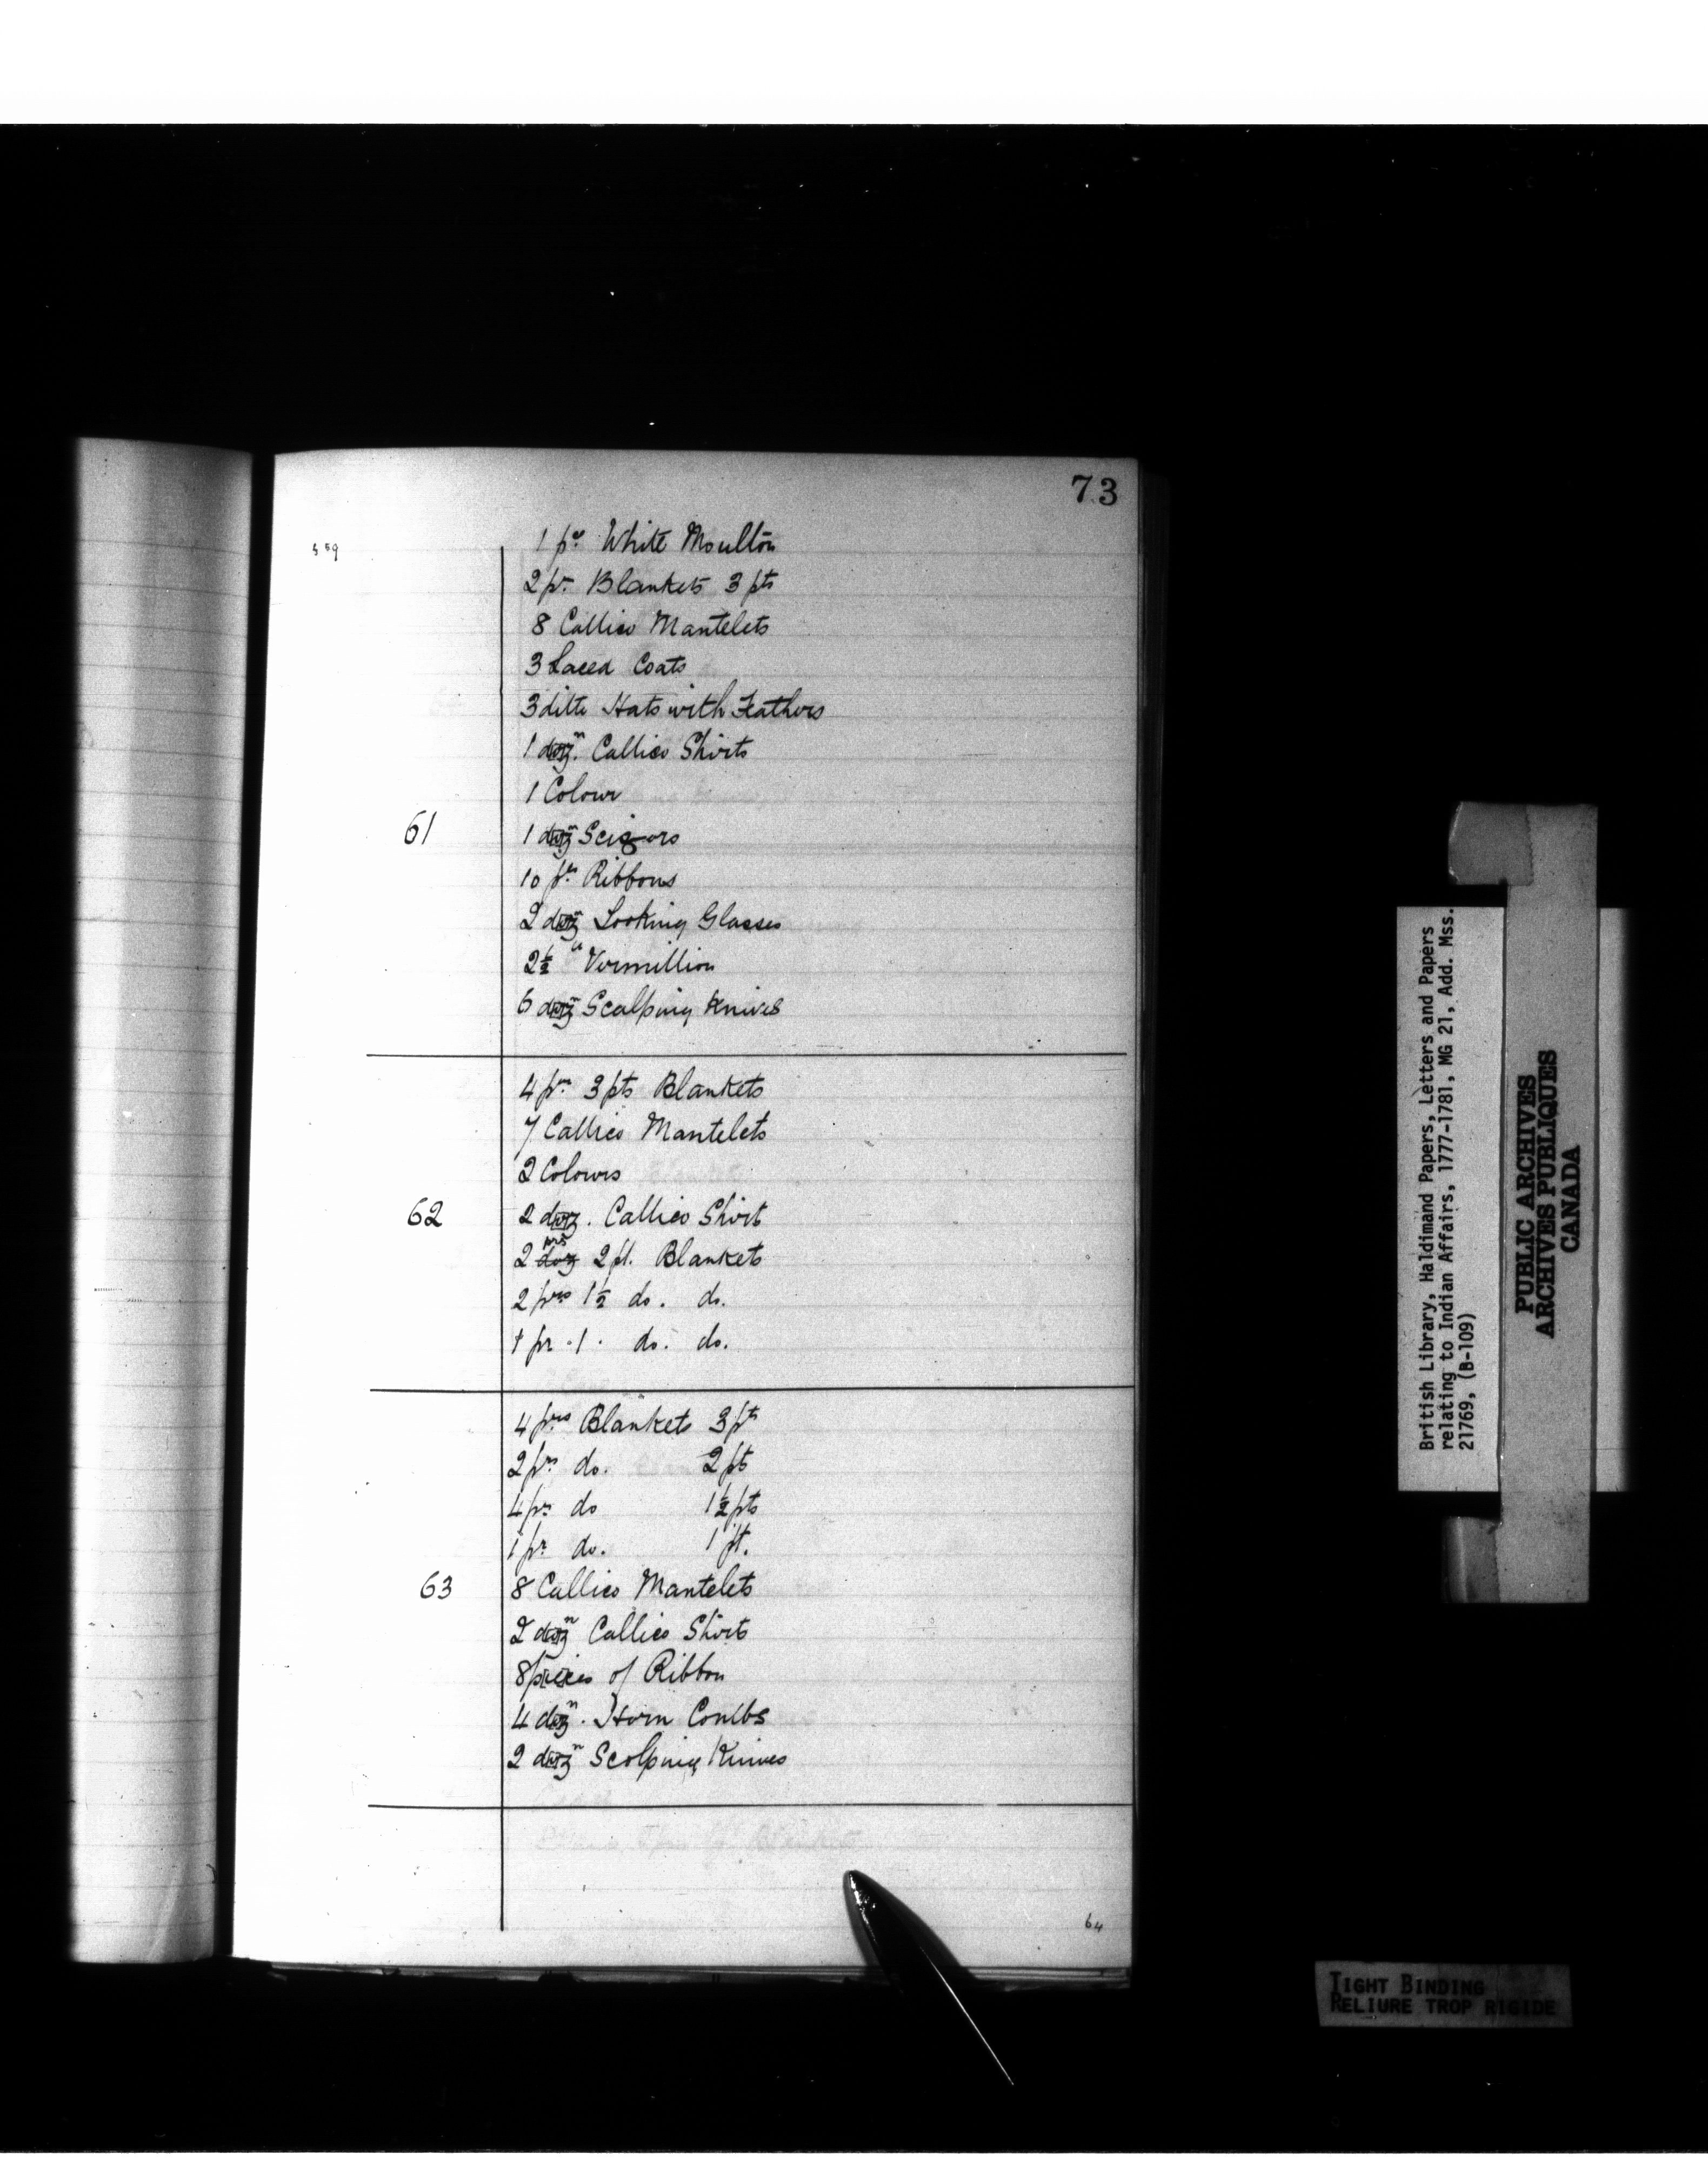 73
1 pc White Moulton
2 pr. Blankets 3 pts
8 Callico Mantelets
3 Laced Coats
3 ditto Hats with Feathers
1 dozn. Callico Shirts
1 Colour
61
1 dozn Scizors
10 ps Ribbons
2 dozn Looking Glasses
2½ " Vermillion
6 dozn Scalping Knives
4 prs 3 pts Blankets
7 Callico Mantelets
2 Colours
62
2 doz. Callico Shirt
2 prs doz 2 pt. Blankets
2 prs 1½ do. do.
1 pr . 1 . do. do.
4 prs Blankets 3 pts
2 prs do. 2 pts
4 prs do 1½ pts
1 pr do. 1 pt.
63
8 Callico Mantelets
2 dozn Callico Shirts
8 pieces of Ribbon
4 dozn. Horn Combs
2 dozn Scolping Knives
64
British Library, Haldimand Papers, Letters and Papers
relating to Indian Affairs, 1777-1781, MG 21, Add. Mss.
21769, (B-109)
PUBLIC ARCHIVES
ARCHIVES PUBLIQUES
CANADA
TIGHT BINDING
RELIURE TROP RIGIDE